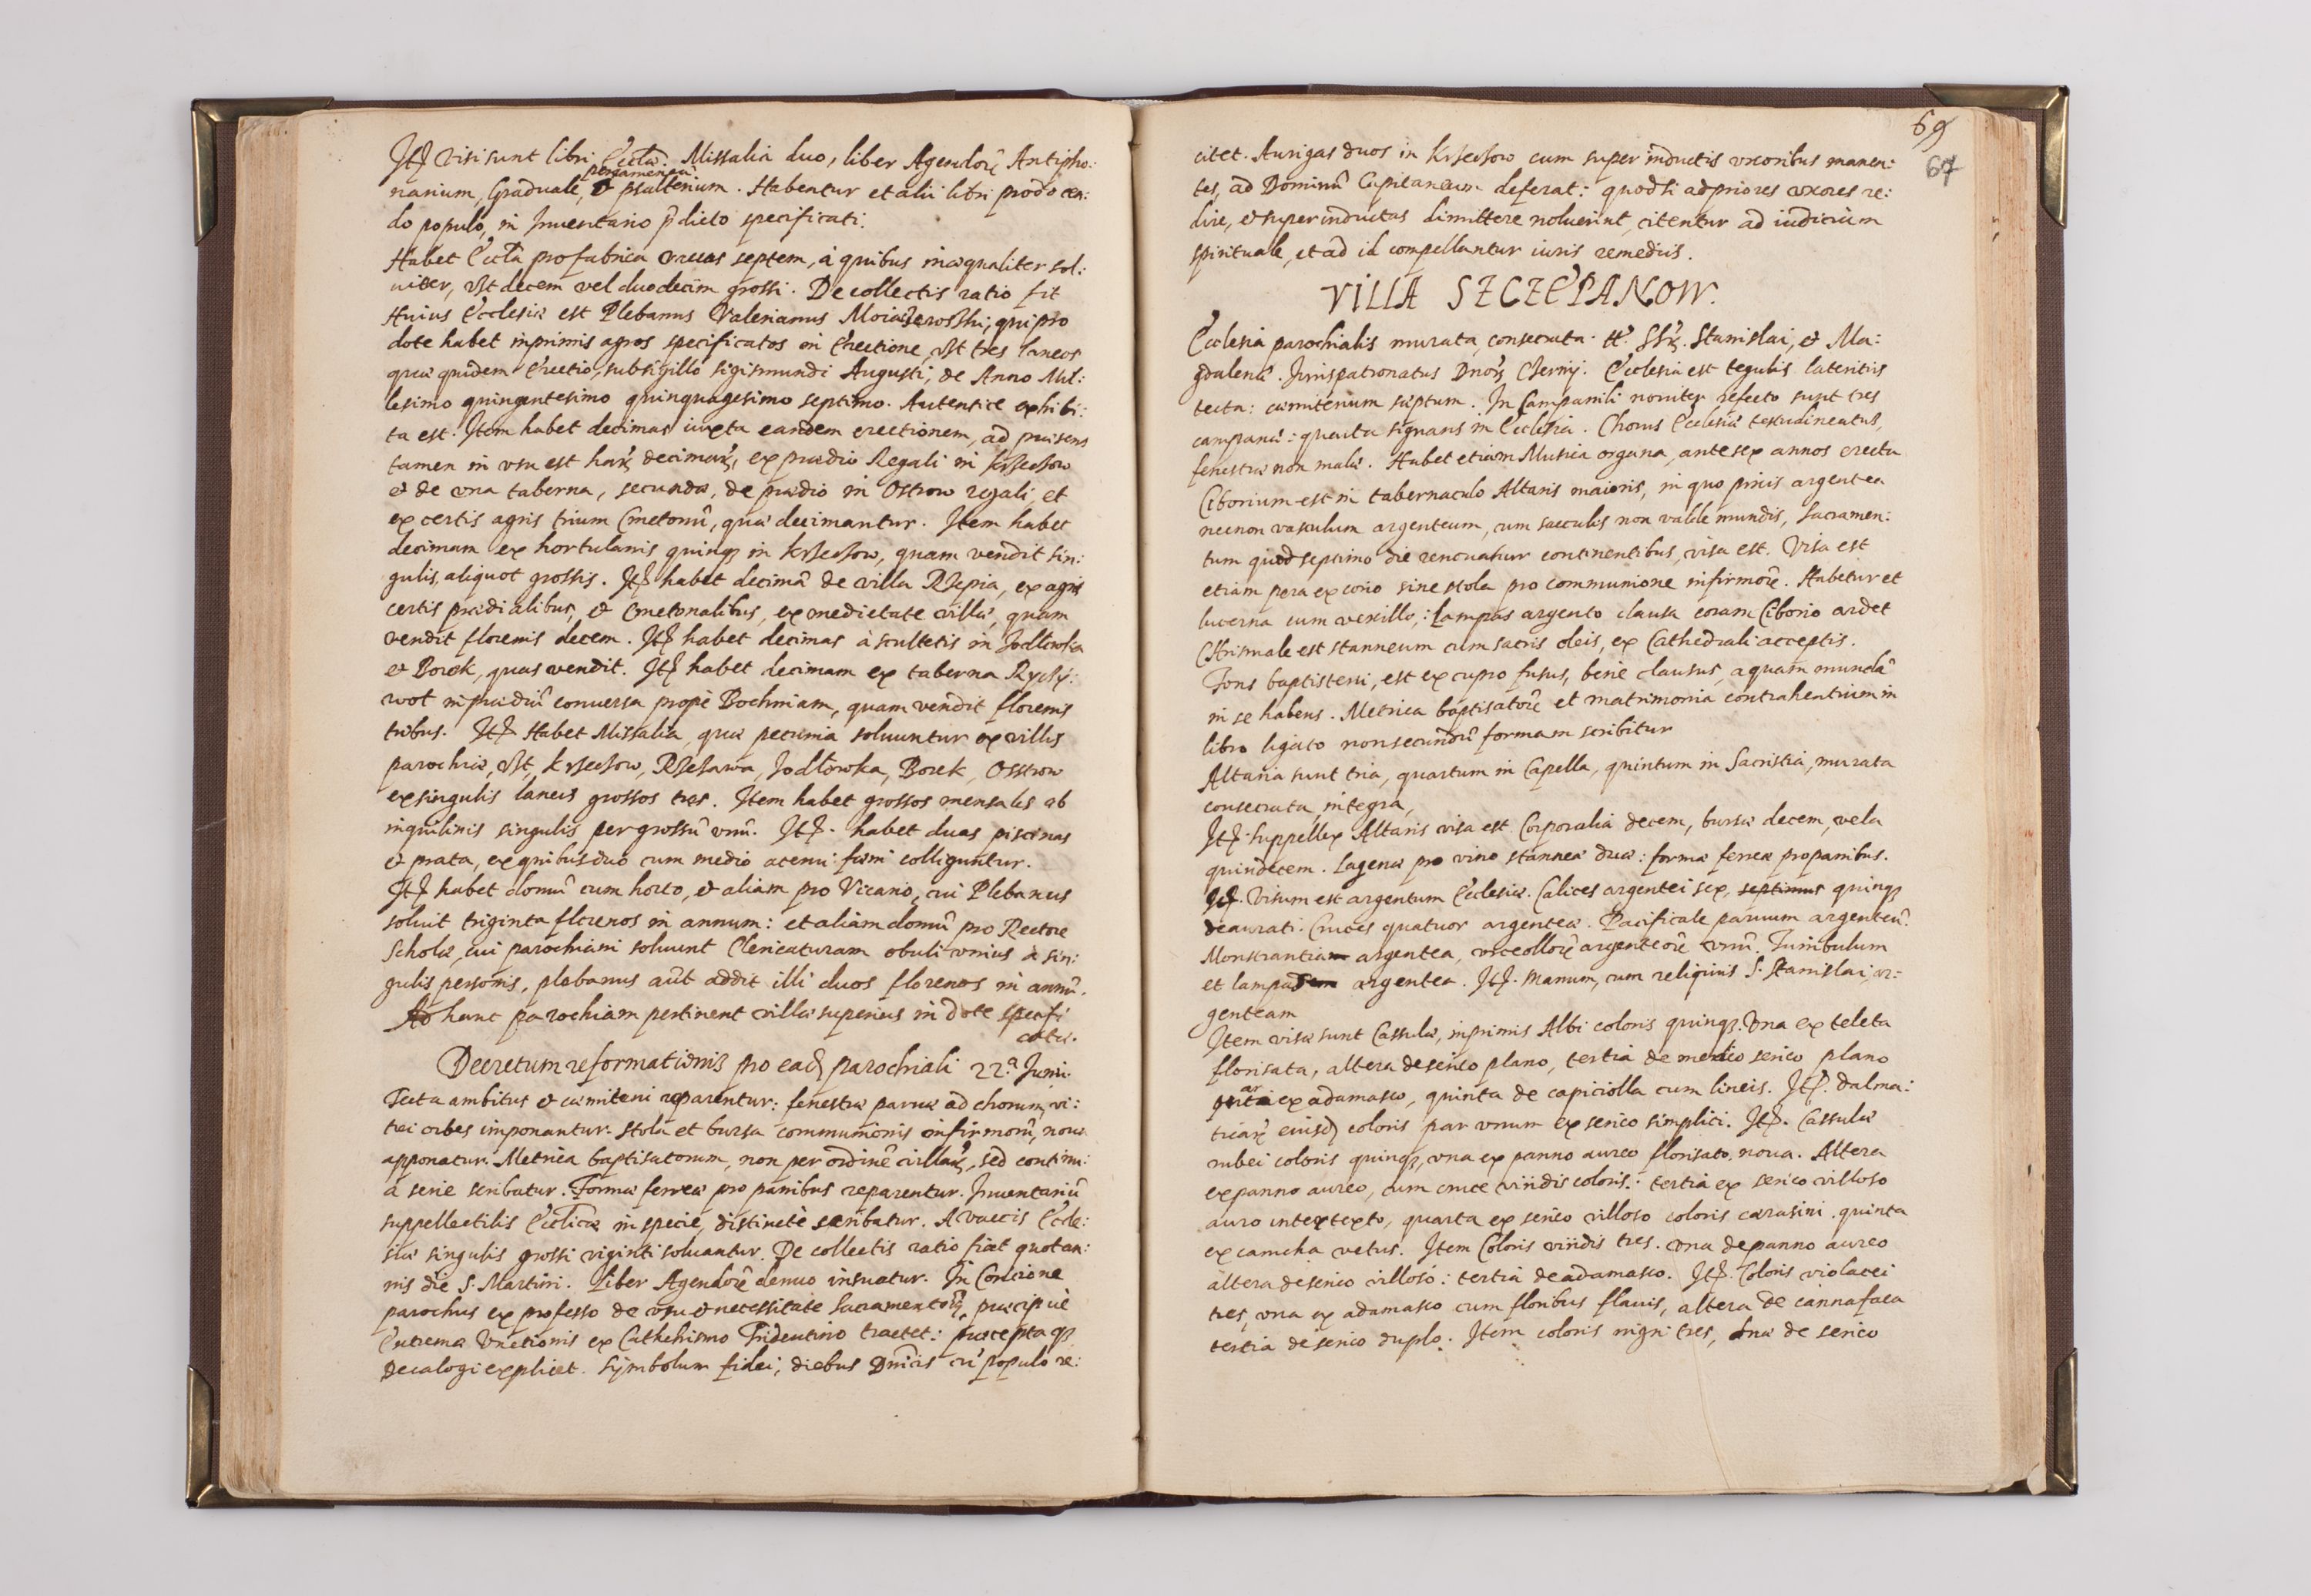 Itẽ Visi sunt libri Eccła. Missalia duo, liber Agendorũ Antipho:
pergamenea
narium, Graduale, & psalterium. Habentur et alii libri pro docen:
do populo, in Inventario p̃dicto specificati.
Habet Eccła pro fabrica vaccas septem, à quibus inæqualiter sol:
uitur, vst decem vel duodecim grossi. De collectis ratio fit
Huius Ecclesiæ est Plebanus Valerianus qui pro
dote habet inprimis agros specificatos in Erectione, vst tres laneos
quæ quidem Erectio, sub sigillo Sigismundi Augusti, de Anno Mil:
lesimo quingentesimo quinquagesimo septimo. Autentice exhibi:
ta est. Item habet decimas iuxta eandem erectionem, ad præsens
tamen in vsu est harũ decimarũ, ex prædio Regali in Krzeczow
& de vna taberna, secundæ, de prædio in Ostrow regali, et
ex certis agris trium Cmetonũ, quæ decimantur. Item habet
decimam ex hortulanis quinq3 in Krzeczow, quam vendit sin:
gulis, aliquot grossis. Itẽ habet decimã de villa Rzepia, ex agris
certis prædialibus, & Cmetonalibus, ex medietate villæ, quam
vendit florenis decem. Itẽ habet decimas à scultetis in Jodłowka
& Borek, quas vendit. Itẽ habet decimam ex taberna Ryczy:
wol in prædiũ conuersa propè Bochniam, quam vendit florenis
tribus. Itẽ Habet Missalia, quæ pecunia soluuntur ex villis
parochiæ, vst, Krzeczow, Rzezawa, Jodłowka, Borek, Osstrow
ex singulis laneis grossos tres. Item habet grossos mensales ab
inquilinis singulis per grossũ vnũ. Itẽ. habet duas piscinas
& prata, ex quibus duo cum medio acerui fæni colliguntur.
Itẽ habet domũ cum horto, & aliam pro Vicario, cui Plebanus
soluit triginta florenos in annum: et aliam domũ pro Rectore
Scholæ, cui parochiani soluunt Clericaturam obuli vnius à sin:
gulis personis, plebanus aũt addit illi duos florenos in annũ.
Ad hanc parochiam pertinent villæ superius in dote specifi
catæ.
Decretum reformationis pro ead parochiali 22ª Junii.
Tecta ambitus & cæmiterii reparentur: fenestræ paruæ ad chorum, vi:
trei orbes imponantur. Stola et bursa communionis infirmorũ, noua
apponatur. Metrica baptisatorum, non per ordinẽ villarũ, sed continu:
a serie scribatur. Formæ ferreæ pro panibus reparentur. Inuentariũ
suppellectilis Ecclicæ in specie, distinctè scribatur. A vaccis Eccle:
siæ singulis grossi viginti soluantur. De collectis ratio fiat quotan:
nis die S. Martini. Liber Agendorũ denuo insuatur. In Concione
parochus ex professo de vsu & necessitate Sacramentorũ, præcipuè
Extremæ Vnctionis ex Cathehismo Tridentino tractet: præceptaq3
Decalogi explicet. Symbolum fidei, diebus Dnicis cũ populo re:
69
67
citet. Aurigas duos in Krzeczow cum super inductis vxoribus manen:
tes, ad Dominũ Capitaneum deferat: quod si ad priores vxores re:
dire, & superinductas dimittere noluerint, citentur ad iudicium
spirituale, et ad id compellantur iuris remediis.
VILLA SZCZEPANOW.
Ecclesia parochialis murata, consecrata. tt. SSrũ. Stanislai, & Ma:
gdalenæ. Jurispatronatus Dnorũ Czerny. Ecclesia est tegulis lateritiis
tecta: cæmiterium sæptum. In Campanili nouiter refecto sunt tres
campanæ: quarta signans in Ecclesia. Chorus Ecclesiæ testudineatus,
fenestræ non malæ. Habet etiam Musica organa, ante sex annos erecta
Ciborium est in tabernaculo Altaris maioris, in quo pixis argentea
necnon vasculum argenteum, cum sacculis non valde mundis, Sacramen:
tum quod septimo die renouatur continentibus, visa est. Visa est
etiam pera ex corio sine stola pro communione infirmorũ. Habetur et
lucerna cum vexillo,: Lampas argento clausa coram Ciborio ardet
Chrismale est stanneum cum sacris oleis, ex Cathedrali acceptis.
Fons baptisterii, est ex cupro fusus, bene clausus, aquam mundã
in se habens. Metrica baptisatorũ et matrimonia contrahentium in
libro ligato non secundũ formam scribitur
Altaria sunt tria, quartum in Capella, quintum in Sacristia, murata
consecrata, integra,
Itẽ. Suppellex Altaris visa est Corporalia decem, bursæ decem, vela
quindecem. Lagenæ pro vino stanneæ duæ: formæ ferreæ pro panibus.
Itẽ. Visum est argentum Ecclesiæ. Calices argentei sex, septimus quinq3
deaurati. Cruces quatuor argenteæ. Pacificale paruum argenteũ.
Monstrantia argentea, vrceollorũ argenteorũ vnũ. Turribulum
et lampas argentea. Itẽ. manum, cum reliquiis S. Stanislai, ar:
genteam
Item visæ sunt Cassulæ, inprimis Albi coloris quinq3. Vna ex teleta
florisata, altera de serico plano, tertia de medio serico plano
quarta ex adamasco, quinta de capiciolla cum lineis. Itẽ. Dalma:
ticarũ eiusd coloris par vnum ex serico simplici. Itẽ. Cassulæ
rubei coloris quinq3, vna ex panno aureo florisato, noua. Altera
ex panno aureo, cum cruce viridis coloris: tertia ex serico villoso
auro intextexto, quarta ex serico villoso coloris carasini. quinta
ex camcha vetus. Item Coloris viridis tres. vna de panno aureo
altera de serico villoso: tertia de adamasco. Itẽ. Coloris violacei
tres, vna ex adamasco cum floribus flauis, altera de cannafaca
tertia de serico duplo. Item coloris nigri tres, vna de serico